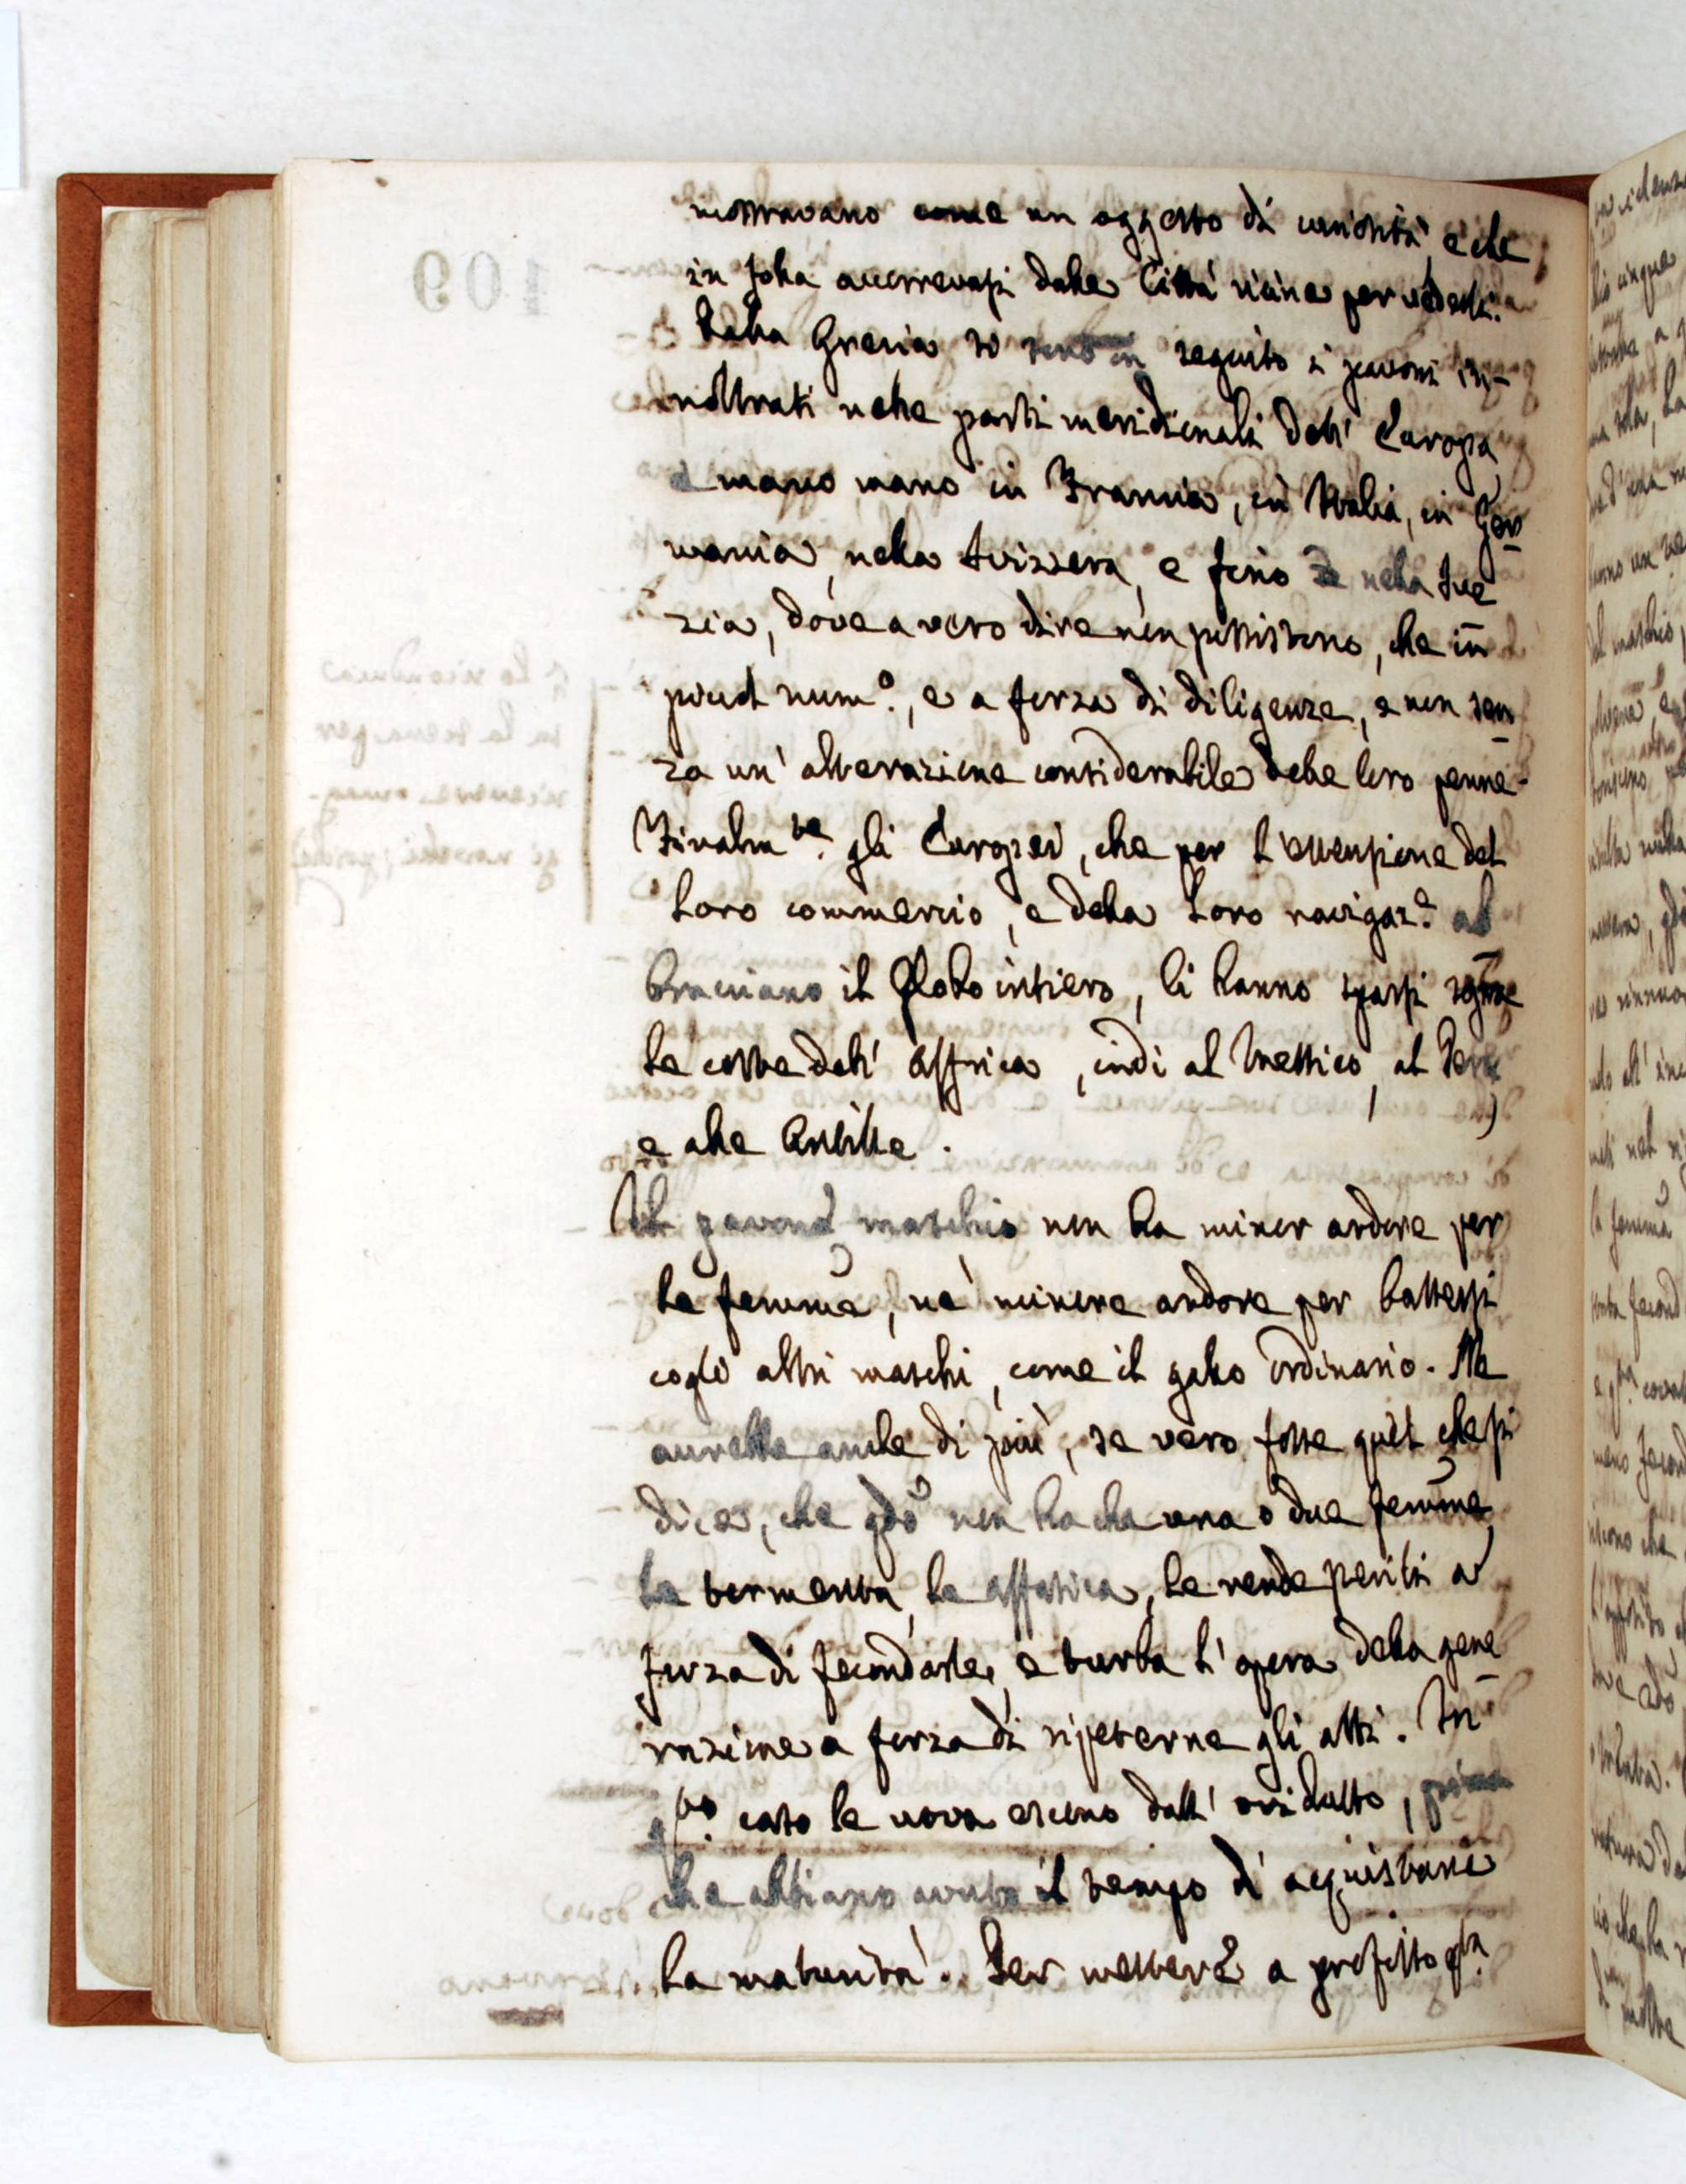 mostravano come un oggetto di curiosità, e che
in folla accorrevasi dalle Città vicine per vederli.
Dalla Grecia si sono in seguito i pavoni in-
noltrati nelle parti meridionali dell' Europa,
e mano mano in Francia, in Italia, in Ger
mania, nella Svizzera, e fino nella Sve
zia, dove a vero dire non sussistono, che in
picciol num.o, e a forza di diligenze, e non sen
za un' alterazione considerabile delle loro penne.
Finalm.te gli Europei, che per l'estensione del
loro commercio, e della loro navigaz.e ab
bracciano il Globo intiero, li hanno sparsi sopra
le coste dell' Affrica, indi al Messico, al Perù,
e alle Antille.
Il pavone maschio non ha minor ardore per
le femme, nè minore ardore per battersi
cogli altri maschi, come il gallo ordinario. Ne
avrebbe anche di più, se vero fosse quel che si
dice, che qdo non ha che una o due femme,
le tormenta, le affatica, le rende sterili a
forza di fecondarle, e turba l' opera della gene
razione a forza di ripeterne gli atti. In
q.to caso le uova escono dall' ovidutto, prima
che abbiano avuto il tempo d' acquistare
la maturità. Per mettere a profitto q.ta
109